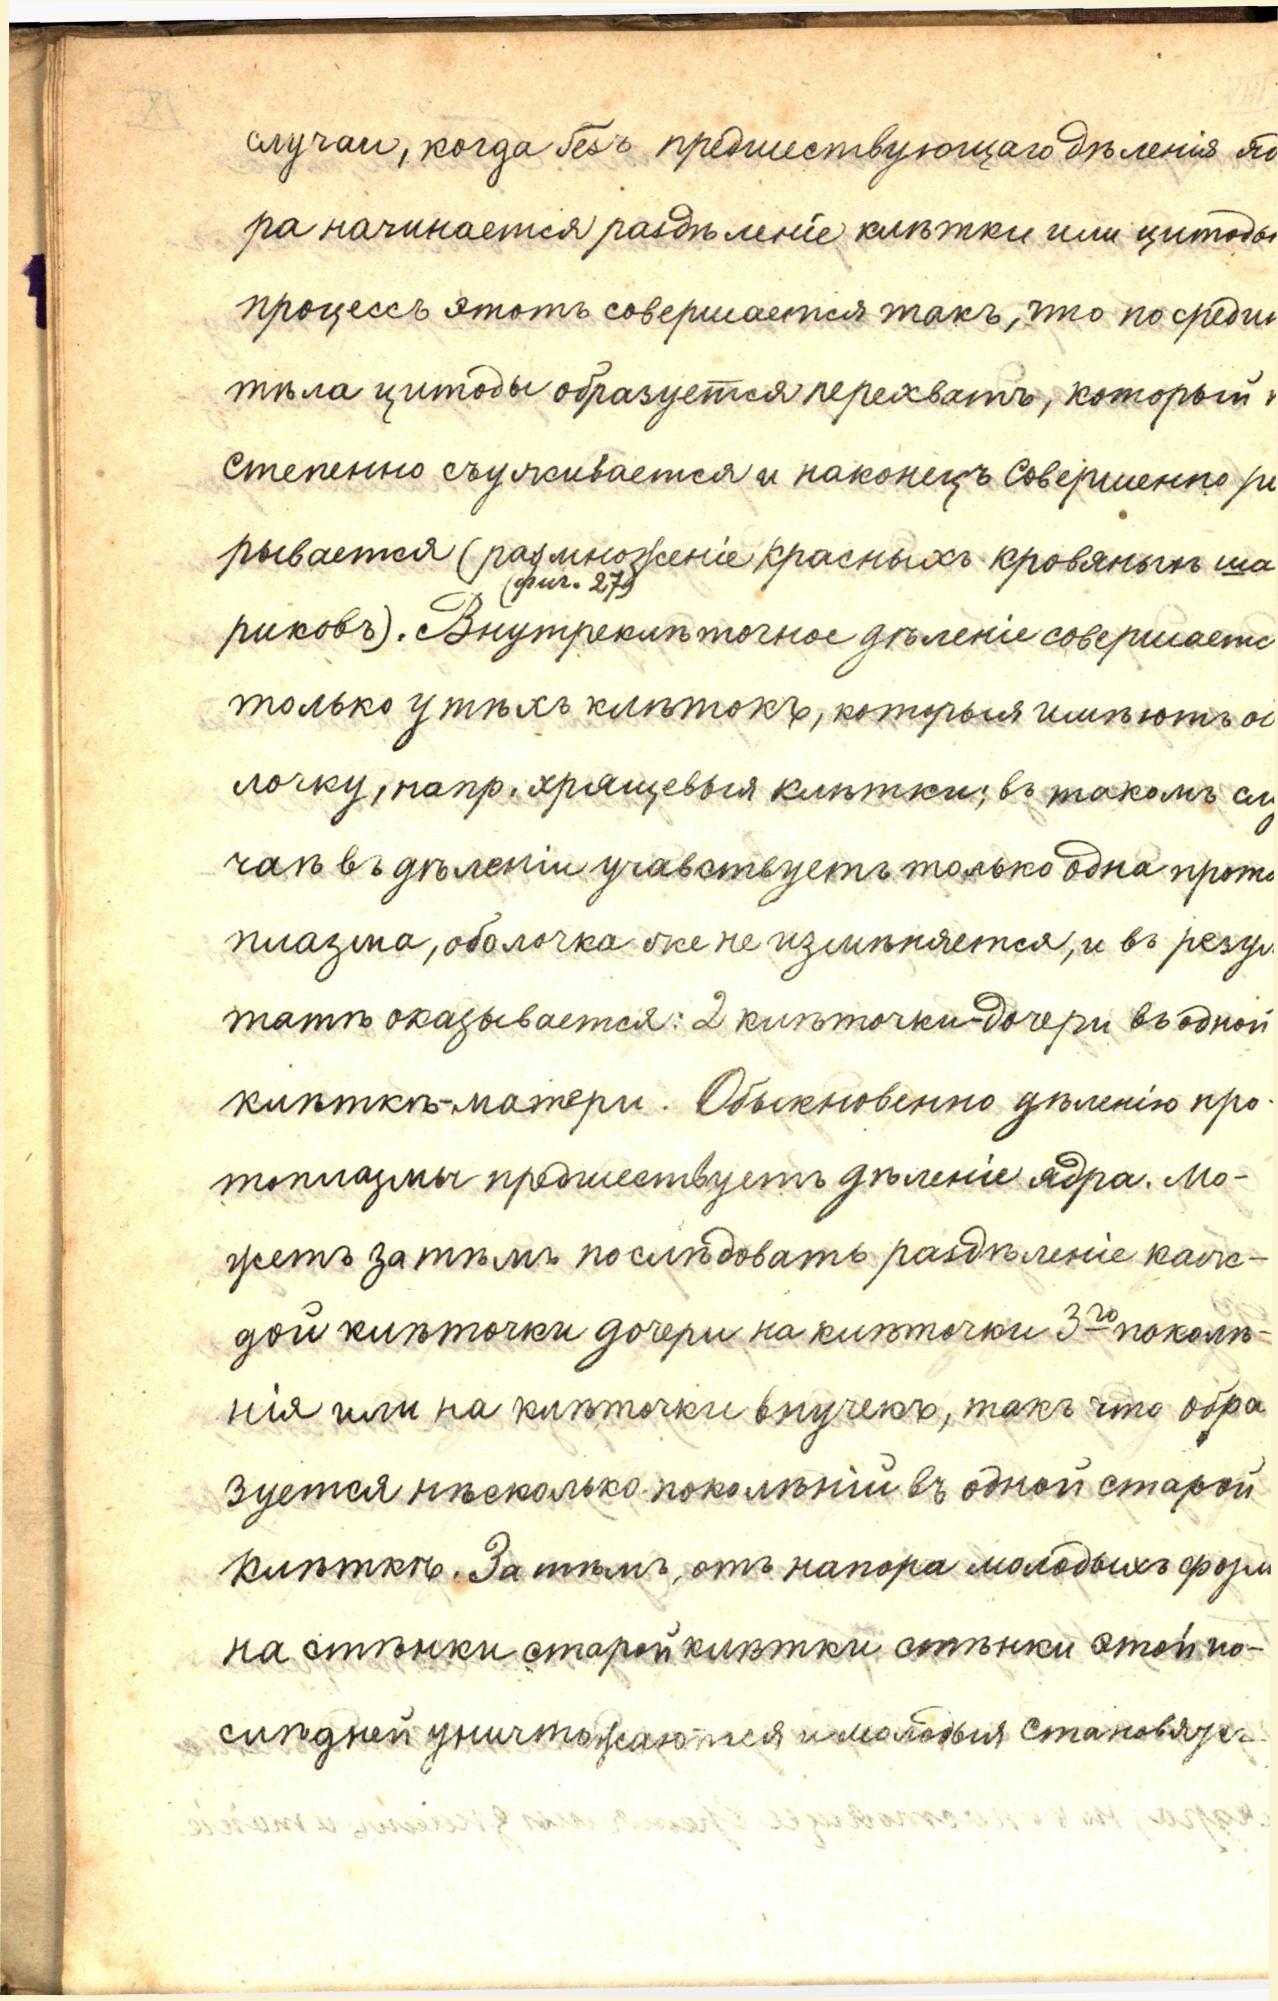 случаи, когда безъ предшествующаго дѣленія яд
ра начинается раздѣленіе клѣтки или цитоды
процессъ этотъ совершается такъ, что по средин
тѣла цитоды образуется перехватъ, который
степенно съуживается и наконецъ совершенно ра
рывается (размноженіе красныхъ кровяныхъ ша
(фиг. 279)
риковъ). Внутреклѣточное дѣленіе совершаетс
только у тѣхъ клѣтокъ, которыя имѣютъ об
лочку, напр. хрящевыя клѣтки; въ такомъ слу
чаѣ въ дѣленіи учавствуетъ только одна прото
плазма, оболочка же не измѣняется, и въ резул
татѣ оказывается: 2 клѣточки-дочери въ одной
клѣткѣ-матери. Обыкновенно дѣленію про-
топлазмы предшествуетъ дѣленіе ядра. Мо-
жетъ за тѣмъ послѣдовать раздѣленіе каж-
дой клѣточки дочери на клѣточки 3го поколѣ-
нія или на клѣточки внучекъ, такъ что обра
зуется нѣсколько поколѣній въ одной старой
клѣткѣ. За тѣмъ, отъ напора молодыхъ форм
на стѣнки старой клѣтки стѣнки этой по-
слѣдней уничтожаются и молодыя становятся